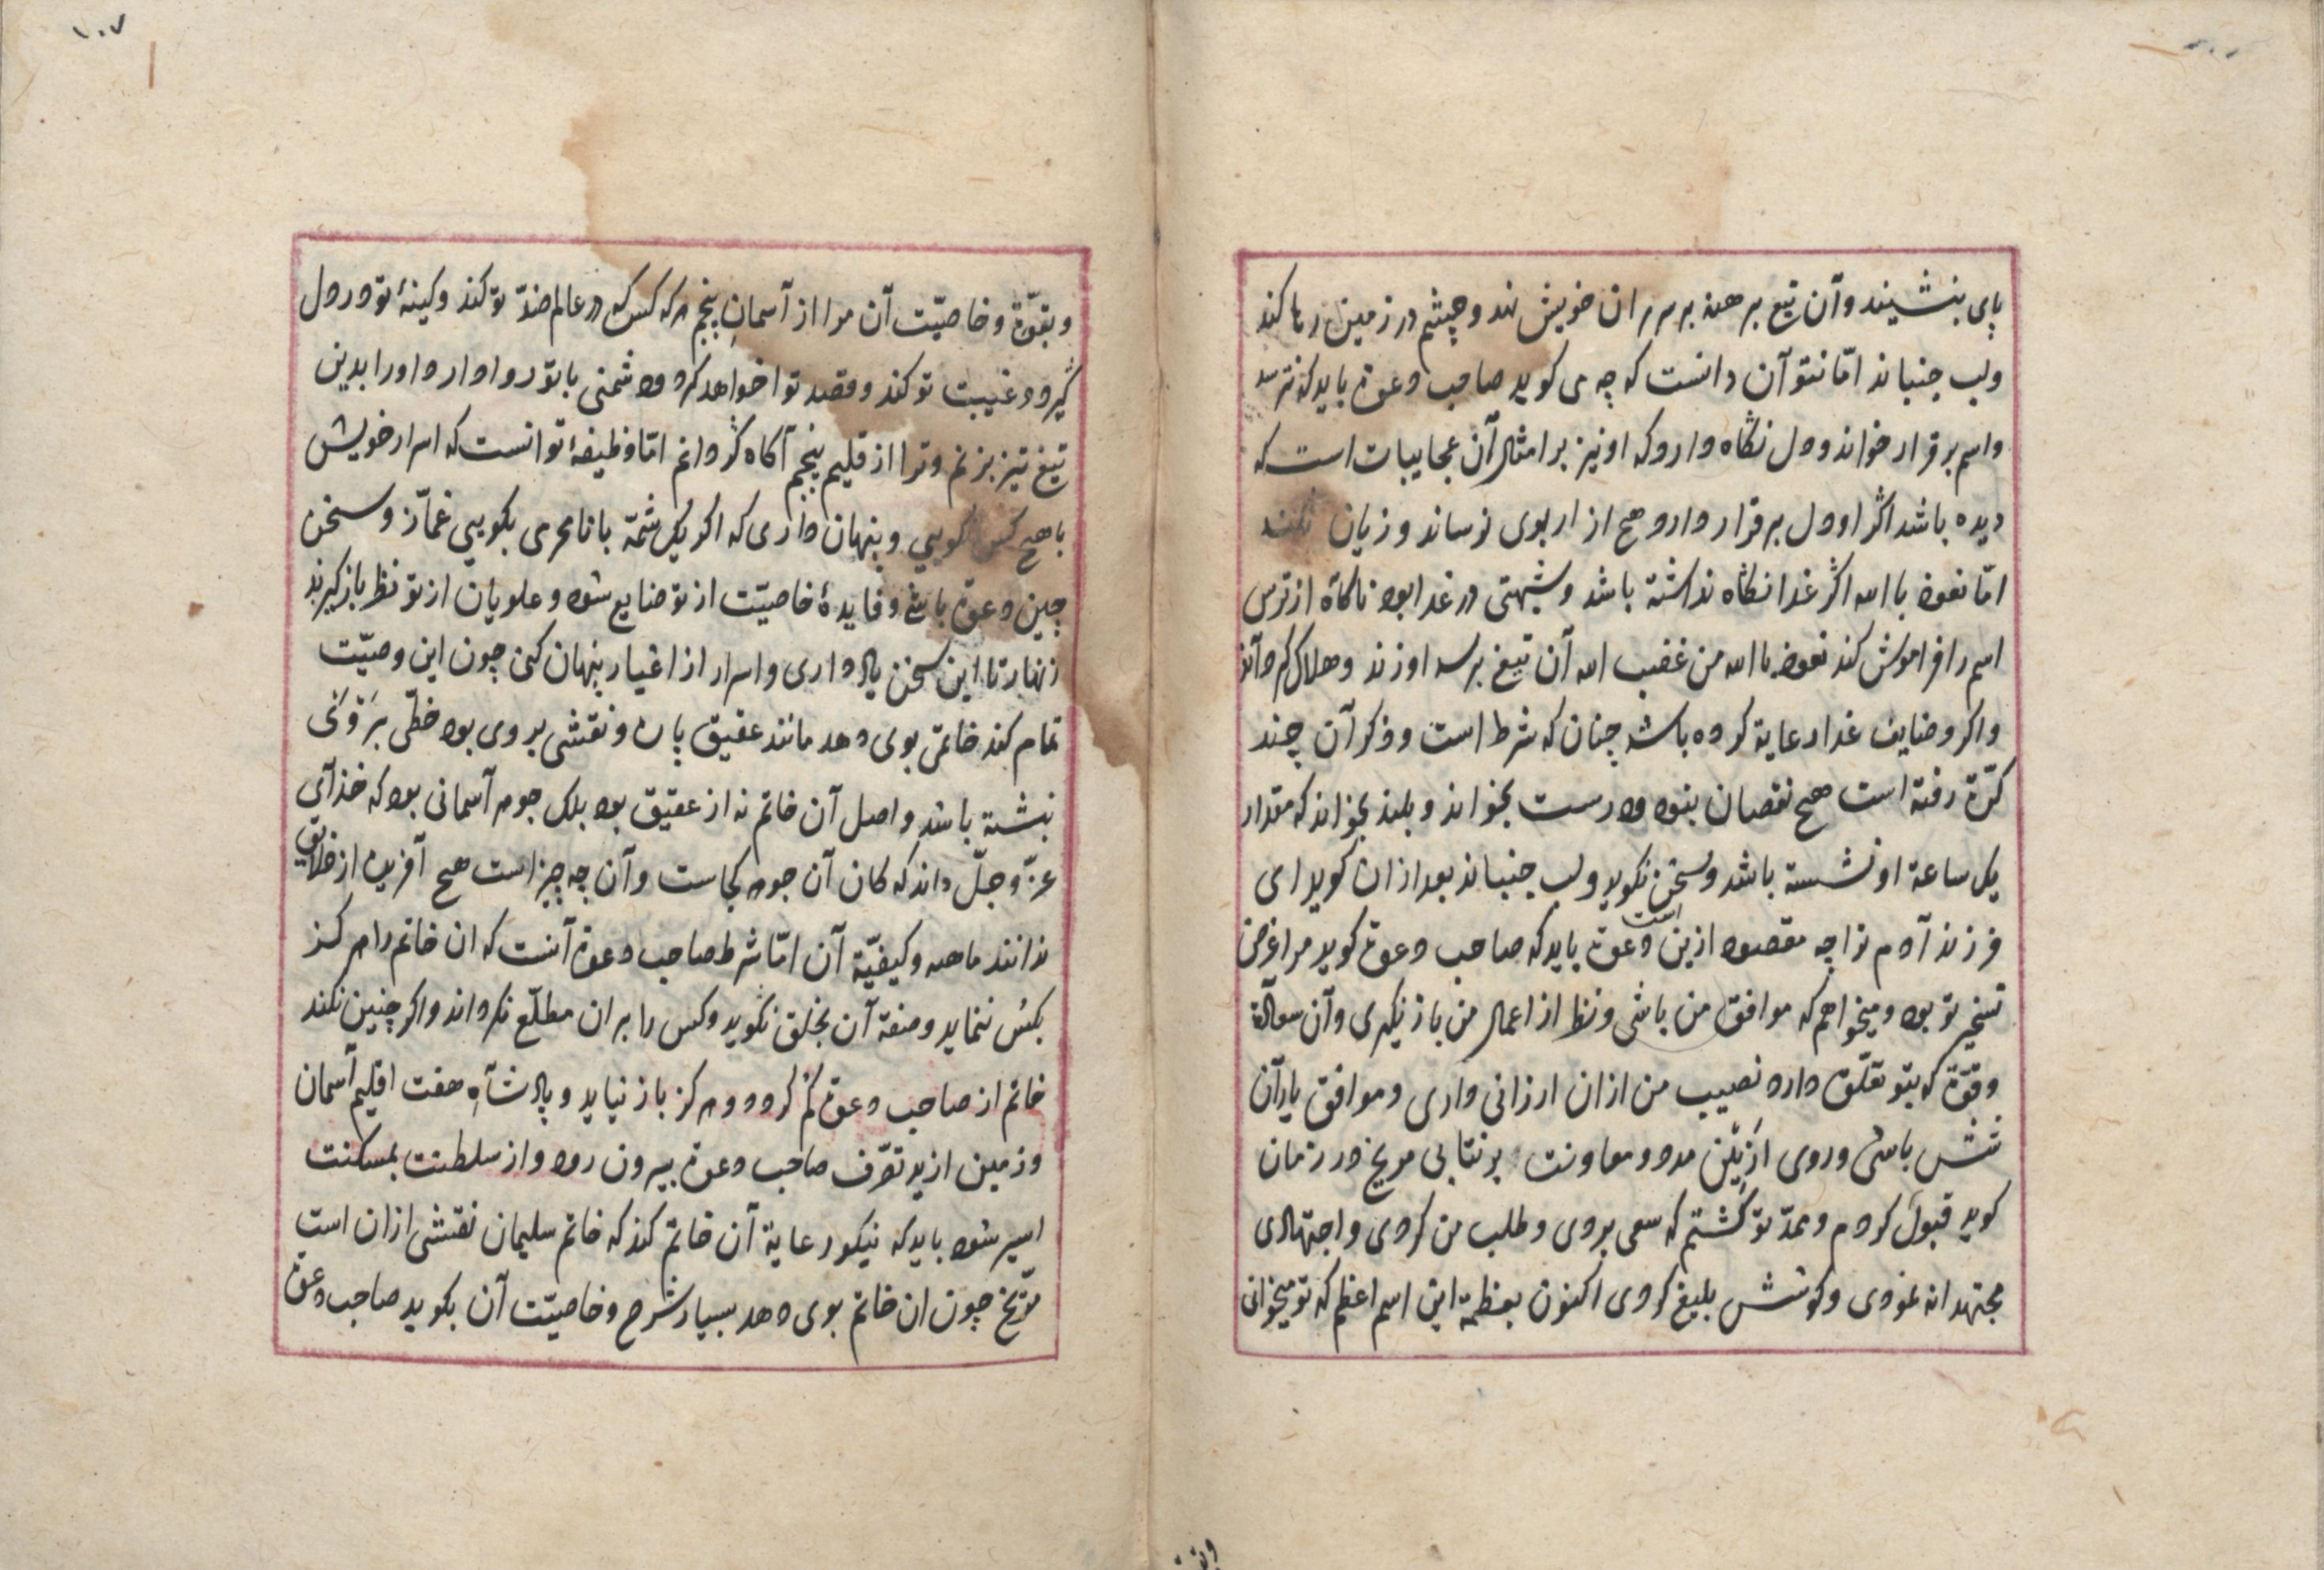 پای بنشیند و آن تیغ برهنه بر سر ران خویش نهد و چشم در زمین رها کند
ولب جنباند امّا نتوآن دانست که چه می کوید صاحب دعوة باید که نترسد
واسم برقرار خواند ودل نگاه دارد که او نیز بر امثال آن عجایبات است که
دیده باشد اگر او دل برقرار دارد هیچ ازار بوی نرساند و زیان نکند
امّا نعوذ باالله اگر غدا نگاه نداشته باشد و شبهتی در غدا بود ناکاه از ترس
اسم را فراموش کند نعوذ باالله من غضب الله آن تیغ بر سر او زند و هلاک کرداند
واکر وضایف غدا رعایة کرده باشد چنان که شرط است وذکر آن چند
کرّة رفته است هیچ نقصان بنود ودرست بخواند و بلند بخواند که مقدار
یک ساعة او نشسته باشد وسخن نکوید ولب جنباند بعد ازان کوید ای
فرزند آدم ترا چه مقصود ازین دعوة است باید که صاحب دعوة کوید مرا غرض
تسخیر تو بود و میخواهم که موافق من باشی و نظر از اعمال من باز نکیری وآن سعآلة
وقوّة که بتو تعلّق دارد نصیب من ازان ارزانی داری و موافق یارآن
شش باشی وروی ازین مدد و معاونت برنتابی مریخ در زمان
کوید قبول کردم و ممدّ تو کشتم که سعی بردی و طلب من کردی و اجتهادی
مجتهدانه نمودی و کوشش بلیغ کردی اکنون بعظمة این اسم اعظم که تو میخوانی
۱۰۷
وبقوّة وخاصیّت آن مرا از آسمان پنجم هرکه کس که در عالم ضدّ تو کند وکینهٔ تو در دل
گیرد وغیبت تو کند وقصد توا خواهد کرد ودشمنی با تو روا دارد اورا بدین
تیغ تیز بزنم وترا از قلیم پنجم آکاه گردانم امّا وظیفهٔ تو انست که اسرار خویش
با هیچ کس نکویی و پنهان داری که اکر یک شمّة با نامحرمی بکویی غمّاز و سخن
چین دعوة باشی وفایدهٔ خاصیّت از تو ضایع شود و علویان از تو نظر بازکیرند
زنهار تا این سخن یاد داری واسرار از اغیار پنهان کنی چون این وصیّت
تمام کند خاتمی بوی دهد مانند عقیق پاره ونقشی بروی بود خطّی
نبشته باشد واصل آن خاتم نه از عقیق بود بلک جوهر آسمانی بود که خذآی
عزّ وجلّ داند که کان آن جوهر کجاست وآن چه چیز است هیچ آفریده از خلایق
ندانند ماهیه وکیفیّة آن امّا شرط صاحب دعوة آنست که ان خاتم را هرکز
بکس ننماید وصفة آن بخلق نکوید وکس را بران مطلّع نکرداند واکر چنین نکند
خاتم از صاحب دعوة کم کردد وهرکز باز نیاید و پادشآه هفت اقلیم آسمان
وزمین از ید تصرّف صاحب دعوة بیرون رود واز سلطنت بمسکنت
اسیر شود باید که نیکو رعایة آن خاتم کند که خاتم سلیمان نقشی ازان است
مرّیخ چون ان خاتم بوی دهد بسیار شرح وخاصیّت آن بکوید صاحب دعوة